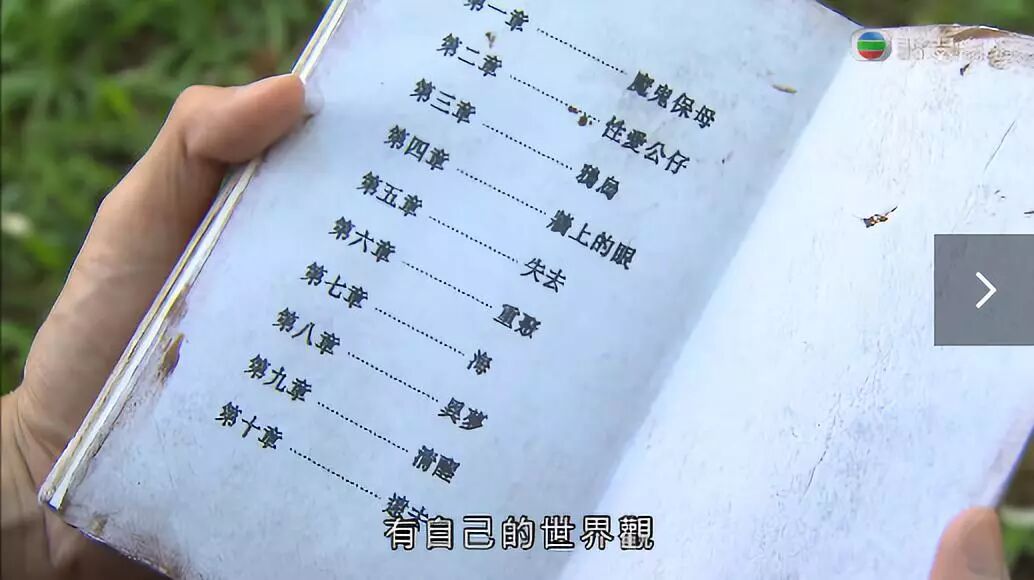 第一章 魔鬼保母
第二章 性愛公仔
第三章
第四章 牆上的眼
第五章 失去
第六章 重聚
第七章 海
第八章 異夢
第九章 清醒
第十章
有自己的世界觀